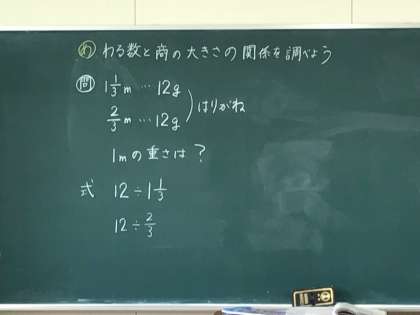 め わる数と商の大きさの関係を調べよう
問 1 1/3 m … 12g
2/3 m … 12g
はりがね
1mの重さは?
式 12÷1 1/3
12÷2/3